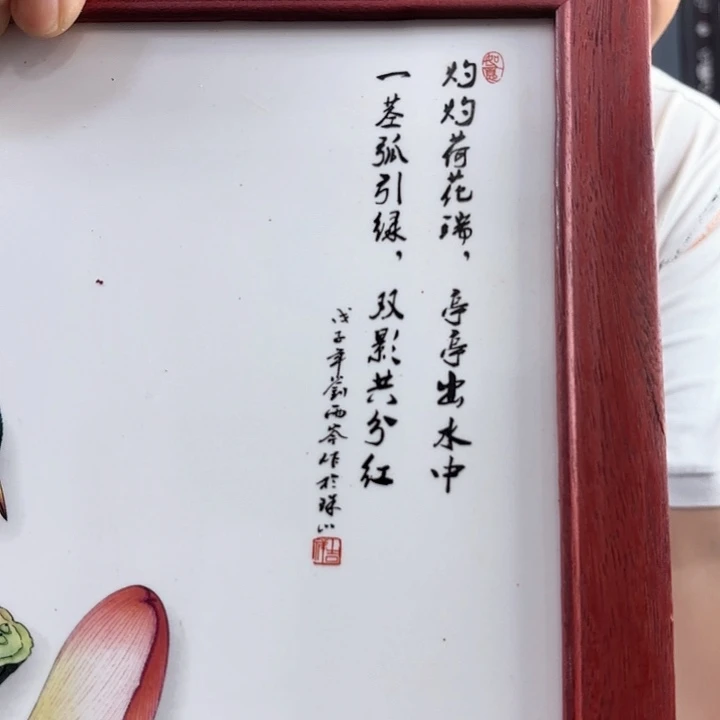 灼灼荷花瑞，亭亭出水中
一茎孤引绿，双影共分红
戊子年劉雨岑作於珠山